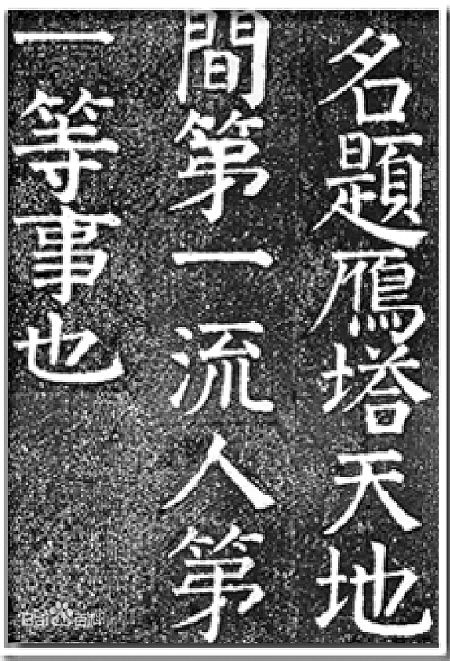 名題鴈塔天地
間第一流人第
一等事也
Bai百科